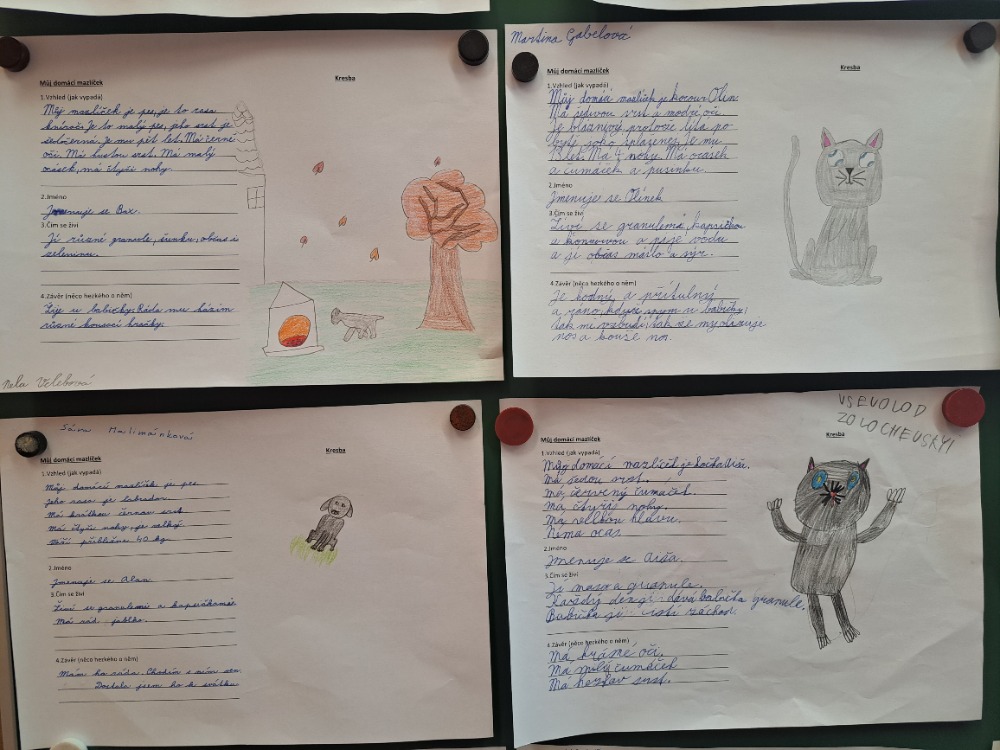 Můj domácí mazlíček
Kresba
1.Vzhled (jak vypadá)
Můj mazlíček je pes, je to rasa
knírač. Je to malý pes, jeho srst je
černé. Je mu pět let. Má černé
oči. Má hustou srst. Má malý
ocásek, má čtyři nohy.
2.Jméno
Jmenuje se Bax.
3.Čím se živí
Jí různé granule, šunku, občas i
zeleninu.
4.Závěr (něco hezkého o něm)
Žije u babičky. Ráda mu házím
různé kousací hračky.
Nela Velebová
Martina Gabelová
Můj domácí mazlíček
Kresba
1.Vzhled (jak vypadá)
Můj domácí mazlíček je kocour Olin
Má šedivou srst a modré oči.
Je bláznivý, protože lítá po
bytě jako splašenej. Je mu
13 let. Má 4 nohy. Má ocásek
a čumáček a pusinku.
2.Jméno
Jmenuje se Olínek
3.Čím se živí
Živí se granulemá, kapsičkou
a konzervou a pije vodu
a jí občas máslo a sýr.
4.Závěr (něco hezkého o něm)
Je hodný a přítulný
a ráno, když spím u babičky,
tak mě vzbudí, tak že my
nos a kouše
Málimánková
Můj domácí mazlíček
Kresba
1.Vzhled (jak vypadá)
Můj domácí mazlíček je pes.
jeho rasa je labrador.
Má krátkou černou srst
Má čtyři nohy, je velký.
Váží přibližně 40 kg.
2.Jméno
Jmenuje se Alan.
3.Čím se živí
Živí se granulemi a kapsičkami.
Má rád jablko.
4.Závěr (něco hezkého o něm)
Mám ho ráda. Chodím s ním ven.
Dostala jsem ho k svátku
VSEVOLOD
ZOLOCHEVSKYI
Můj domácí mazlíček
Kresba
1.Vzhled (jak vypadá)
Můj domácí mazlíček je kočka Aiša.
Má šedou srst.
Má červený čumáček.
Má čtyři nohy.
Má velkou hlavu.
Nemá ocas.
2.Jméno
Jmenuje se Aiša.
3.Čím se živí
Jí maso a granule.
Každý den jí dává babička granule.
Babička jí čistí záchod.
4.Závěr (něco hezkého o něm)
Má krásné oči.
Má milý čumáček
Má srst.